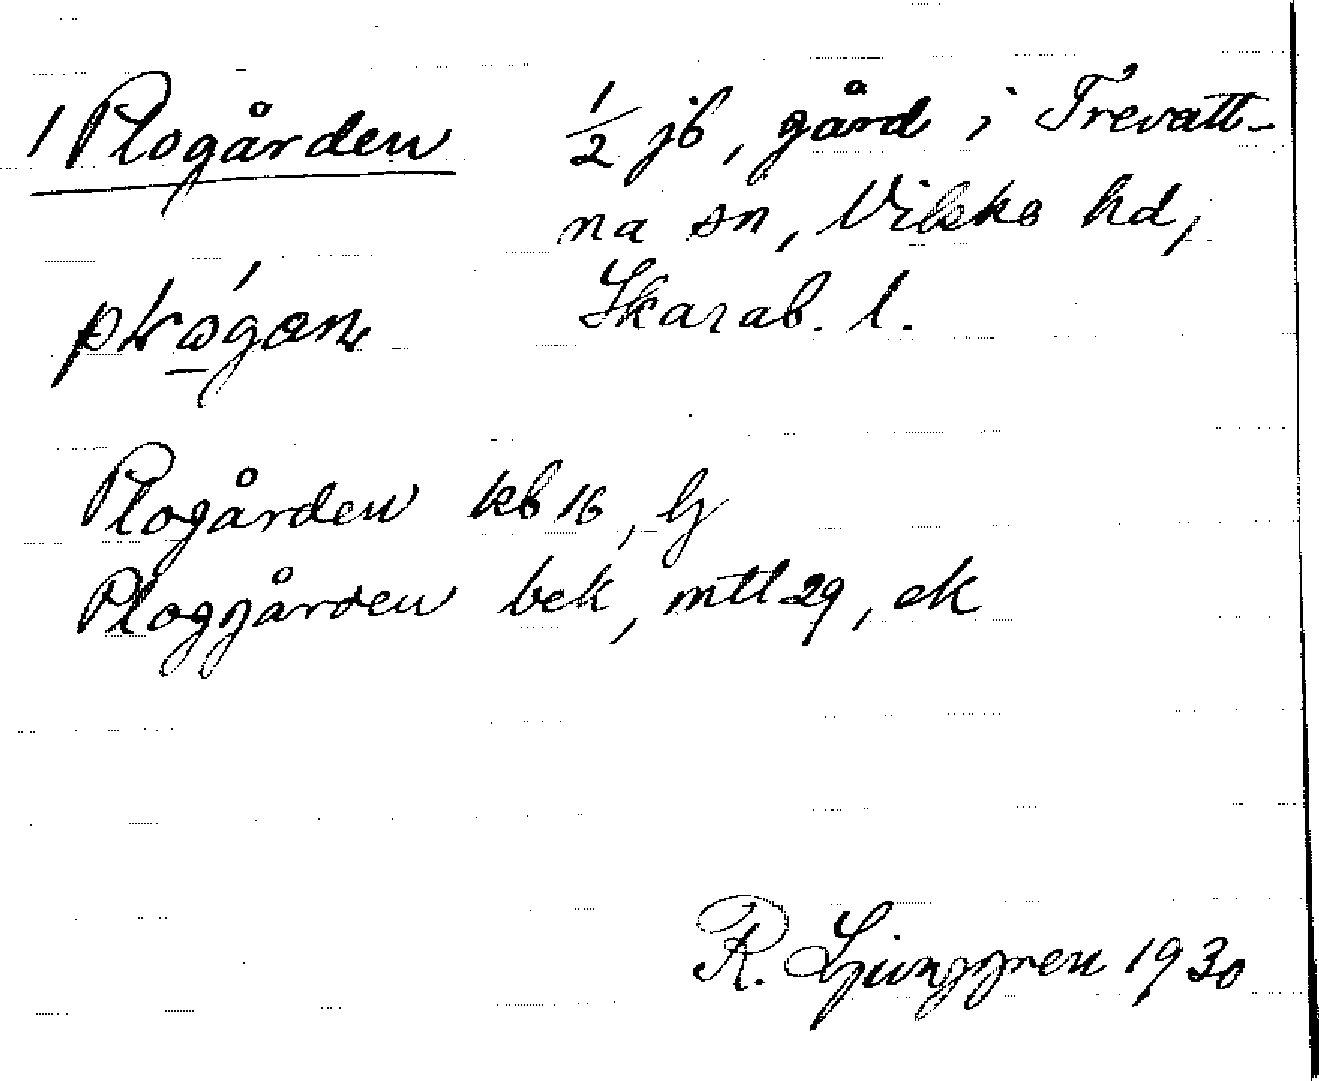 1 Plogården ½ jb, gård i Trevatt-
na sn, Vilske hd,
Skarab. l.
Plogården kb 16, lj
Ploggården bek, mtl 29, ek
R. Ljunggren 1930